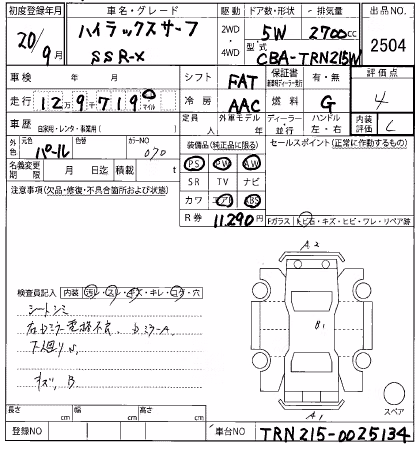 初度登録年月 車名・グレード 駆動 ドア数・形状 排気量 出品NO
20/9月 ハイラックスサーフ 2WD・4WD 5W 2700cc 2504
SSR-X 型式 CBA-TRN215W
車検 年 月 シフト FAT 保証書 有・無 評価点
走行 12万9千719 マイル 冷房 AAC 燃料 G 4
車歴 自家用・レンタ・事業用( ) 定員 人 外車 ディーラー・並行 ハンドル 左・右 内装評価 C
外色 元色 パール 色替 カラーNO 070 装備品(純正品に限る) セールスポイント(正常に動作するもの)
名義変更期限 月 日迄 積載 t PS PW AW
注意事項(欠品・修復・不具合箇所および状態) SR TV ナビ
カワ エアB ABS
R券 11,290円 Fガラス トビ石・キズ・ヒビ・ワレ・リペア跡
A2
検査員記入 内装 汚レ・スレ・キズ・キレ・コゲ・穴
シートシミ
右ミラー電格不良、
下廻りS、
キズ、B
B1
A1
スペア
長さ cm 幅 cm 高さ cm
登録NO 車台NO TRN215-0025134